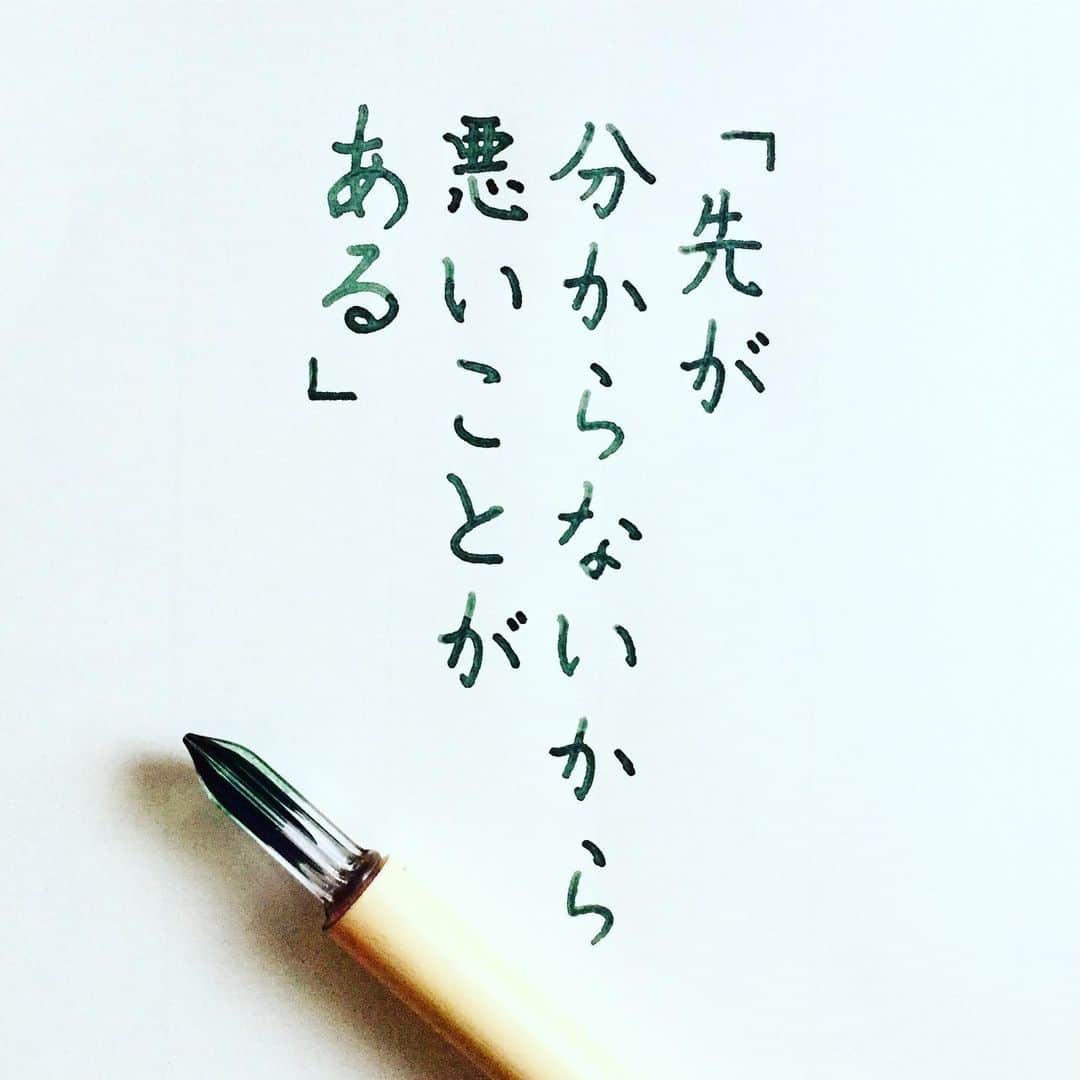 「先が
分からないから
悪いことが
ある」